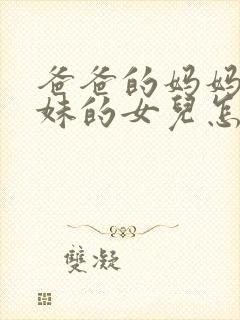 爸爸的妈妈
妹的女兒怎
雙凝